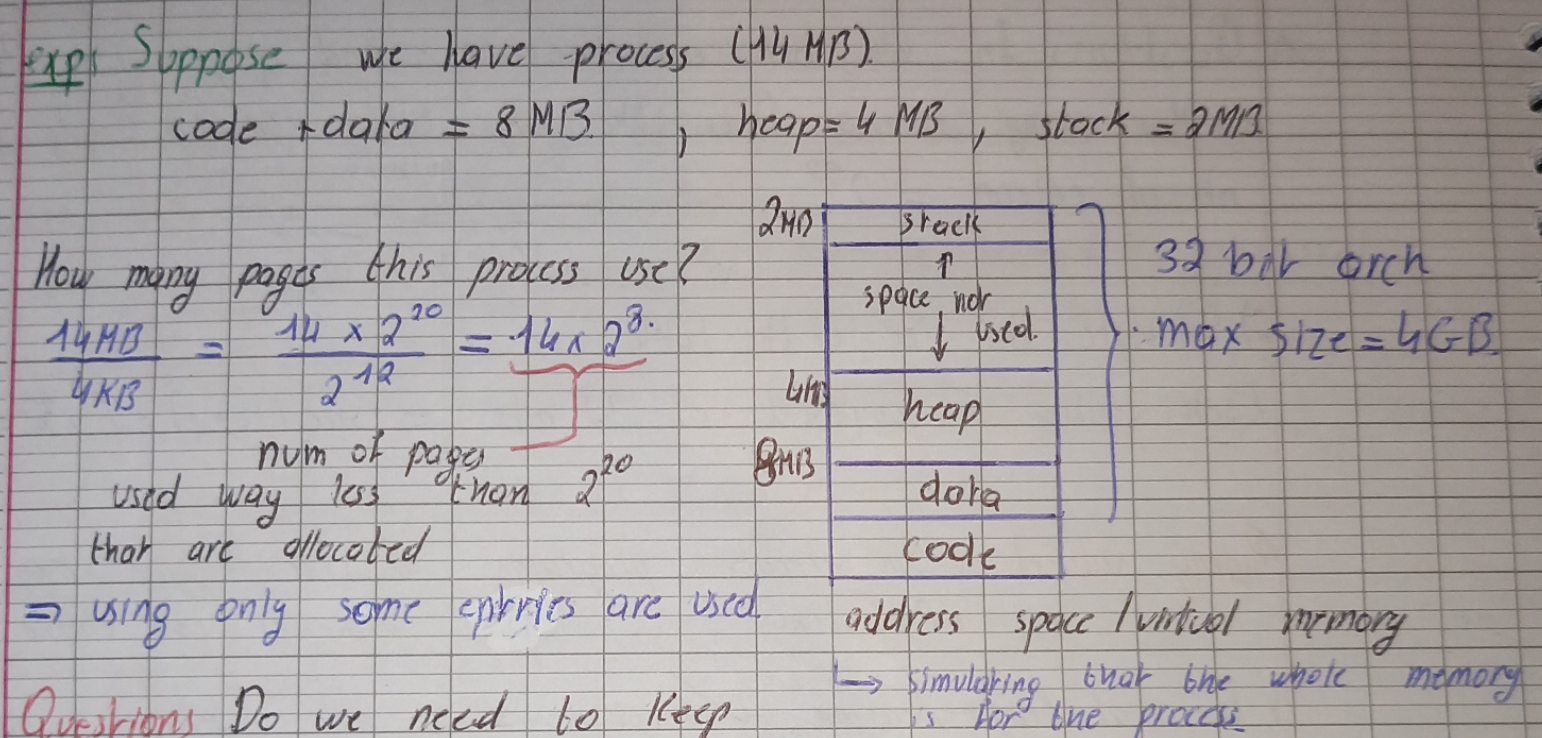 Exp: Suppose we have process (14 MB).
code + data = 8 MB , heap = 4 MB , stack = 2MB
How many pages this process use?
14MB / 4KB = 14 x 2^20 / 2^12 = 14 x 2^8.
num of pages
used way less than 2^20
that are allocated
⇒ using only some entries are used
Questions Do we need to keep
2MB stack
↑
space not
↓ used.
4MB heap
8MB
data
code
32 bit arch
max size = 4GB.
address space / virtual memory
↳ simulating that the whole memory
is for the process